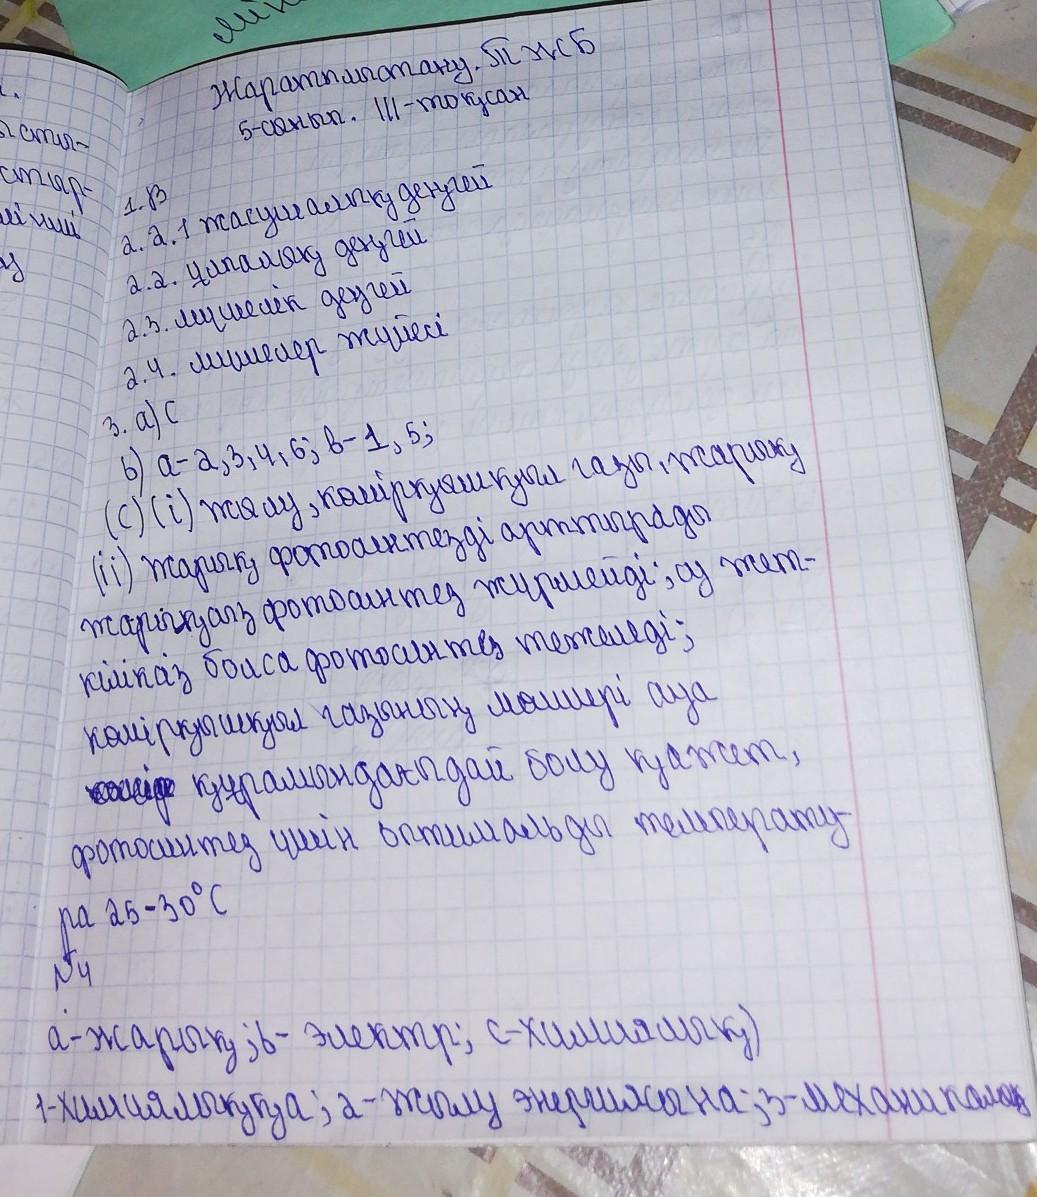 Жаратылыстану. ТЖБ
5-сынып. III-тоқсан
1. В
2. 2.1 жасушалық деңгей
2.2. ұлпалық деңгей
2.3. мүшелік деңгей
2.4. мүшелер жүйесі
3. а) С
b) а-2,3,4,6; в-1,5;
(с) (i) жылу, көмірқышқыл газы, жарық
(ii) жарық фотосинтезді арттырады
жарықсыз фотосинтез жүрмейді; су жет-
кіліксіз болса фотосинтез тежеледі;
көмірқышқыл газының мөлшері ауа
құрамындағыдай болу қажет,
фотосинтез үшін оптимальды температу-
ра 25-30°С
№4
а-жарық; b- электр; с-химиялық)
1-химиялыққа; 2-жылу энергиясына; 3-механикалық